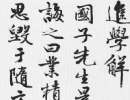 進學解
國子先生晨
誨之曰業精
思毀于隨方